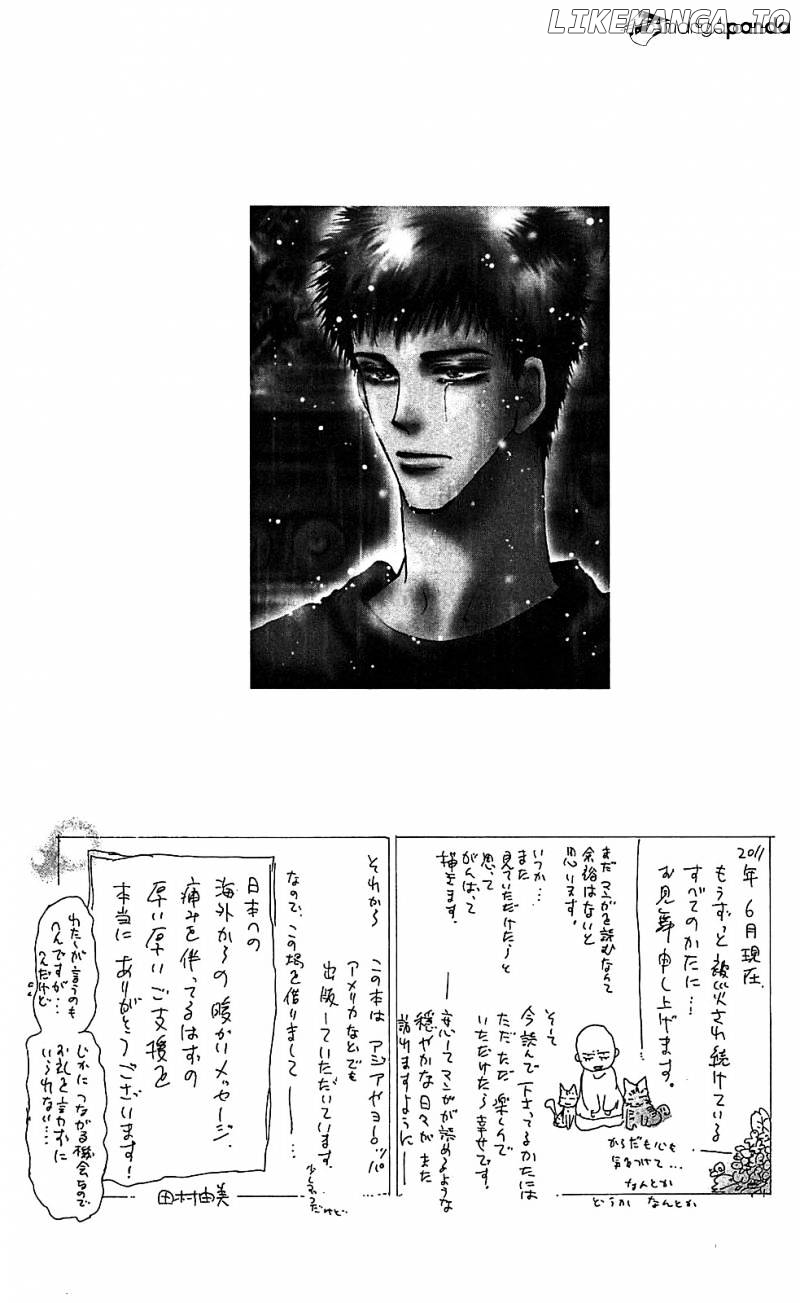 LIKEMANGA.TO
mangapanda
2011年 6月現在.
もうずっと 被災され続けている
すべてのかたに…
お見舞申し上げます。
まだマンガを読むなんて
余裕はないと
思います。
いつか…
また
見ていただけたらと
思って
がんばって
描きます。
からだも心も
気をつけて…
なんとか
どうか なんとか
そして
今読んで下さってるかたには
ただただ 楽しんで
いただけたら幸せです。
―安心してマンガが読めるような
穏やかな日々がまた
訪れますように―
それから
この本は アジアやヨーロッパ
アメリカなどでも
出版していただいています。
少しずつだけど
なので、この場を借りまして――…
日本への
海外からの 暖かいメッセージ、
痛みを伴ってるはずの
厚い厚いご支援を
本当に ありがとうございます!
わたしが言うのも
へんですが…
へんだけど
じかにつながる機会なので
お礼を言わずに
いられない…
田村由美